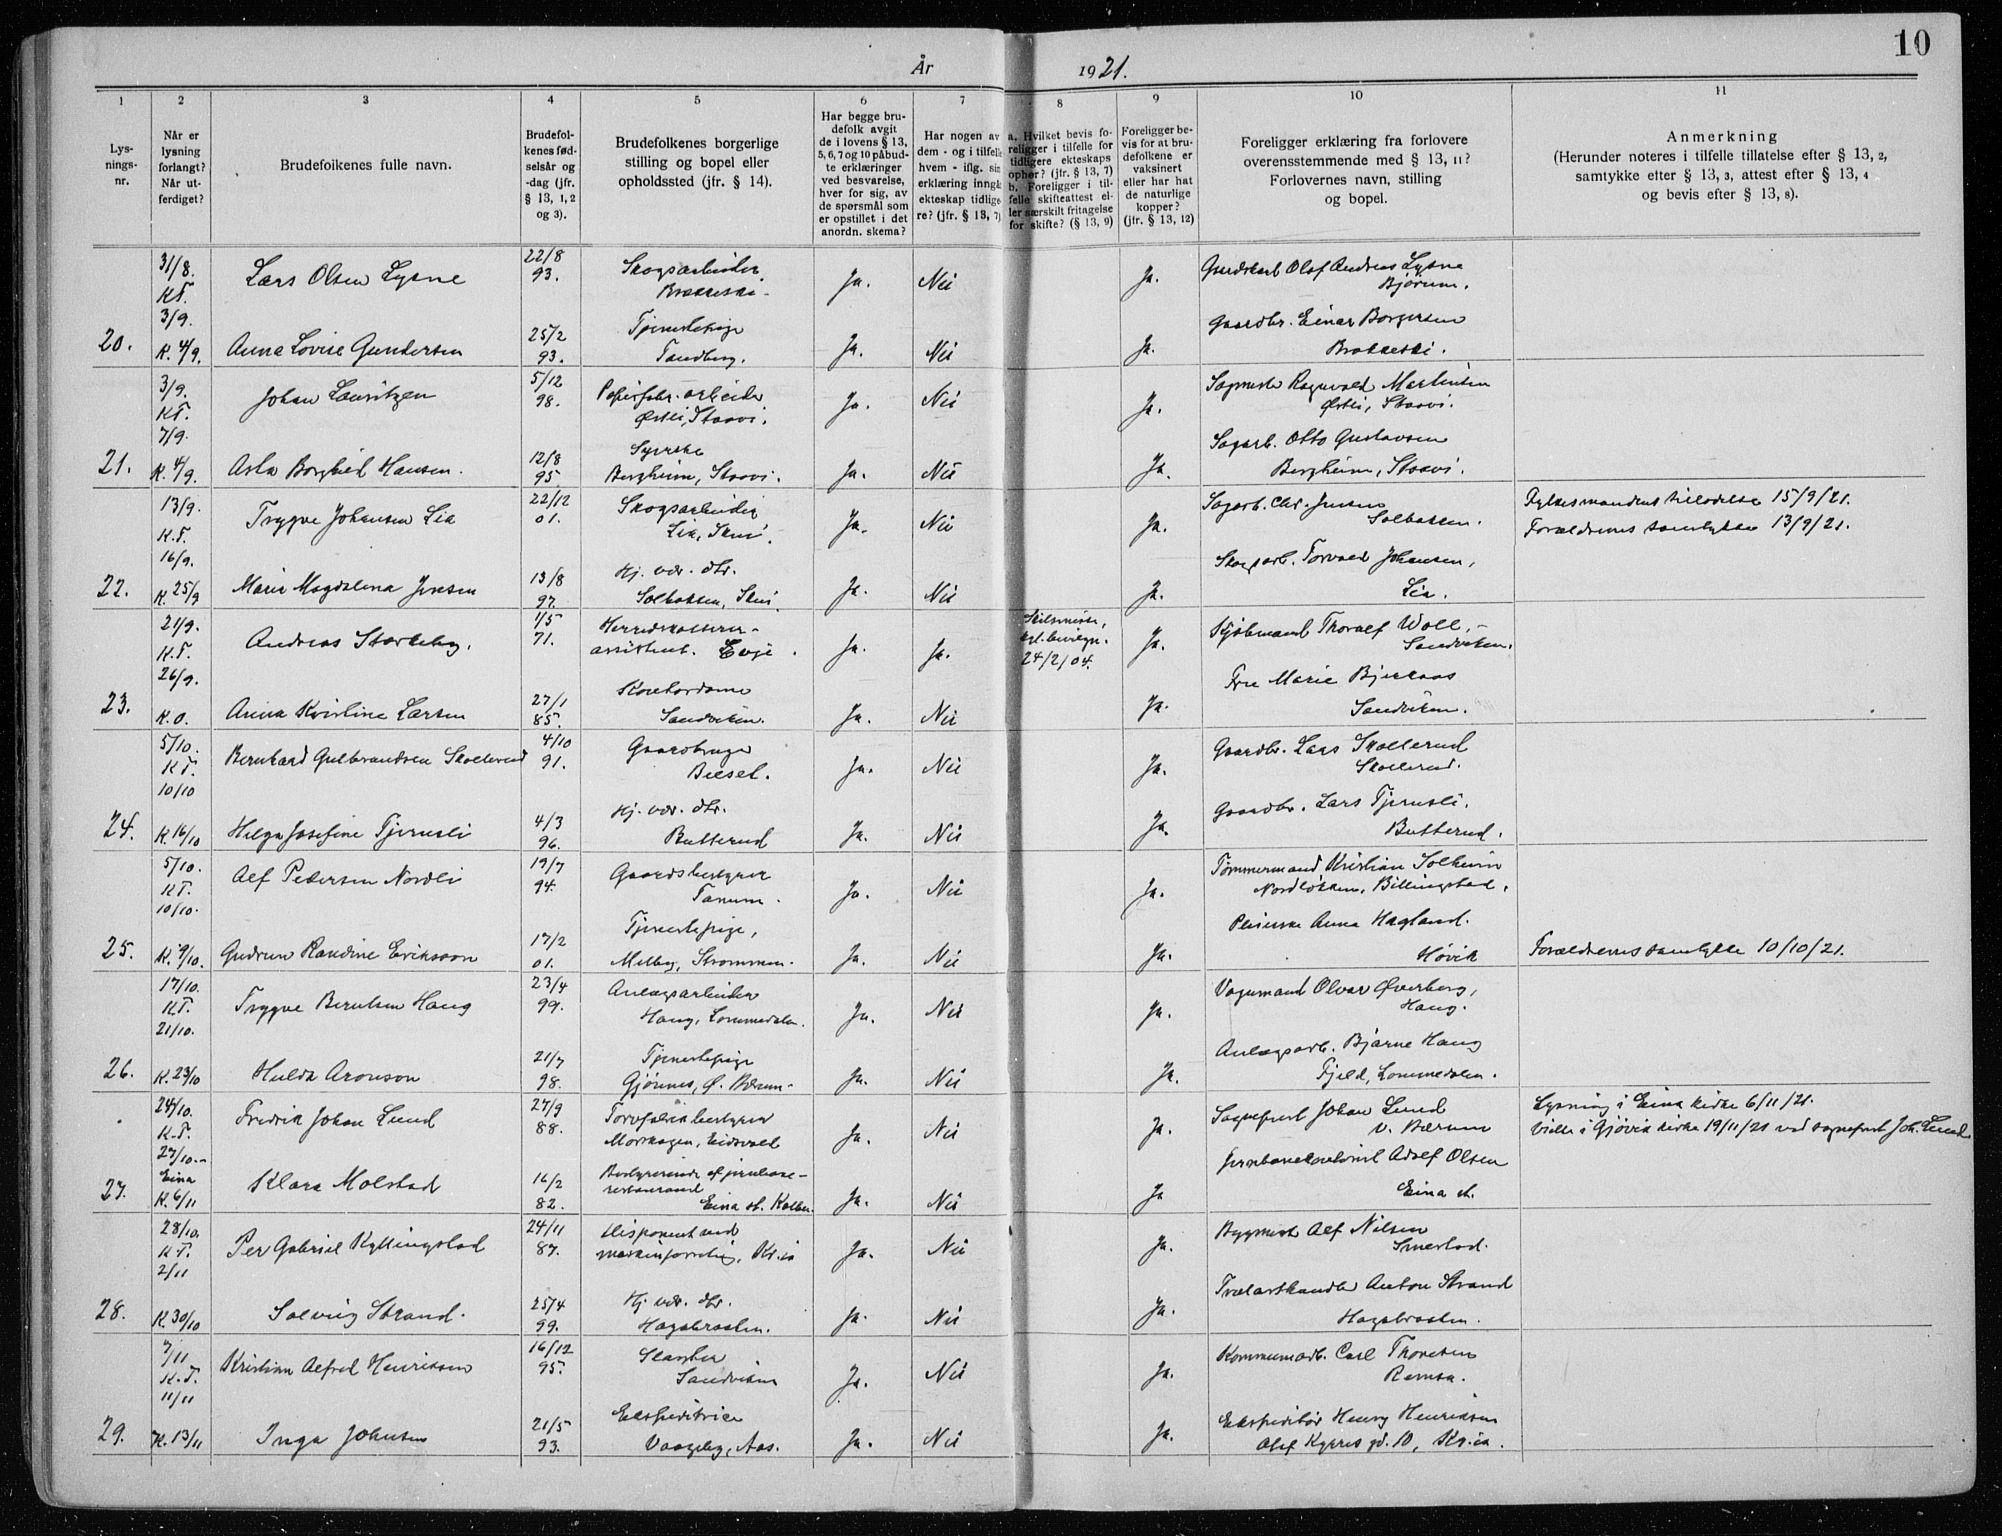 År
1921.
10
1
2
3
4
5
6
7
8
9
10
11
Lys-
nings-
nr.
Når er
lysning
forlangt?
Når ut-
ferdiget?
Brudefolkenes fulle navn.
Brudefol-
kenes fød-
selsår og
-dag (jfr.
§ 13, 1, 2
og 3).
Brudefolkenes borgerlige
stilling og bopel eller
opholdssted (jfr. § 14).
Har begge bru-
defolk avgit
de i lovens § 13,
5, 6, 7 og 10 påbud-
te erklæringer
ved besvarelse,
hver for sig, av
de spørsmål som
er opstillet i det
anordn. skema?
Har nogen av
dem - og i tilfelle
hvem - iflg. sin
erklæring inngåt
ekteskap tidlige-
re? (jfr. § 13, 7)
a. Hvilket bevis fo-
religger i tilfelle for
tidligere ekteskaps
ophør? (jfr. § 13, 7)
b. Foreligger i til-
felle skifteattest el-
ler særskilt fritagelse
for skifte? (§ 13, 9)
Foreligger be-
vis for at bru-
defolkene er
vaksinert
eller har hat
de naturlige
kopper?
(jfr. § 13, 12)
Foreligger erklæring fra forlovere
overensstemmende med § 13, 11?
Forlovernes navn, stilling
og bopel.
Anmerkning
(Herunder noteres i tilfelle tillatelse efter § 13, 2,
samtykke efter § 13, 3, attest efter § 13, 4
og bevis efter § 13, 8).
31/8. Lars Olsen Lysne 22/8 Skogsarbeider Ja. Nei Ja. Gaardskarl Olaf Andreas Lysne
K.T. 93. Bjørum.
3/9. Tjenestepige Gaardbr. Einar Borgersen
20. K. 4/9. Anna Lovise Gundersen 25/2 93. Tandberg. Ja. Nei Ja.
3/9. Johan Lauritzen 5/12 Papirfabr. arbeider Ja. Nei Ja. Sagmester Ragnvald Martinsen
K.T. 98. Østli, Staavi. Østli, Staavi.
7/9. Syerske Sagarb. Otto Gustavsen
21. K. 4/9. Asta Borghild Hansen. 12/8 95. Bergheim, Staavi. Ja. Nei Ja. Bergheim, Staavi.
13/9. Trygve Johansen Lia 22/12 Skogsarbeider Ja. Nei Ja. Sagarb. Chr. Jensen Fylkesmandens tilladelse 15/9/21.
K.T. 01. Lia, Skui. Solbakken. Forældrenes samtykke 13/9/21.
16/9. Hj. vær. dtr. Skogarb. Torvald Johansen,
22. K. 25/9 Marie Magdalena Jensen 13/8 97. Solbakken, Skui. Ja. Nei Ja. Lia.
21/9. Andreas Starheby. 1/5 Herredskasserer- Ja. Ja. Skilsmisse, Ja. Kjøbmand Thoralf Woll,
K.T. 71. assistent. Evje. kgl. bevilgn. Sandviken.
26/9. Kontordame 24/2/04. Fru Marie Bjerkaas
23. K.O. Anna Kristine Larsen 27/1 85. Sandviken. Ja. Nei Ja. Sandviken.
5/10. Bernhard Gulbrandsen Skollerud 4/10 Gaardbruger Ja. Nei Ja. Gaardbr. Lars Skollerud
K.T. 91. Bilsel. Skollerud.
10/10 Hj. vær. dtr. Gaardbr. Lars Tjernsli.
24. K. 16/10 Helga Josefine Tjernsli 4/3 96. Butterud Ja. Nei Ja. Butterud.
5/10. Alf Pedersen Nordli 19/7 Gaardsbestyrer Ja. Nei Ja. Tømmermand Kristian Solheim
K.T. 94. Tanum. Nordløkken, Billingstad.
10/10. Tjenestepige, Anna Hagland.
25. K. 9/10. Gudrun Randine Eriksson 17/2 01. Melby, Strommen. Ja. Nei Ja. Høvik Forældrenes samtykke 10/10/21.
17/10. Trygve Berntsen Haug 23/4 Anlægsarbeider Ja. Nei Ja. Vognmand Olvar Øverberg,
K.T. 99. Haug, Lommedalen. Haug.
21/10. Tjenestepige Anlægsarb. Bjarne Haug
26. K. 23/10 Hulda Aronson 21/7 98. Gjønnes, Ø. Bærum. Ja. Nei Ja. Fjeld, Lommedalen.
24/10. Fredrik Johan Lund 27/9 Torvfabrikbestyrer Ja. Nei Ja. Sogneprest Johan Lund Lysning i Eina kirke 6/11/21.
K.T. 88. Morskogen, Eidsvold V. Bærum Vielse i Gjøvik kirke 19/11/21 ved sogneprest Joh. Lund.
27/10. Bestyrerinde af jernbane- Adolf Olsen
27. Eina K. 6/11 Klara Molstad 16/2 82. restaurand Eina st. Kolbu. Ja. Nei Ja Eina st.
28/10. Per Gabriel Kyllingstad 24/11 Disponent ved Ja. Nei Ja. Bygmest. Alf Nilsen
K.T. 87. maskinforretning, Kr.ia Smestad.
2/11 Hj. vær. dtr. Trælasthandler Anton Strand
28. K. 30/10 Solveig Strand. 25/4 99. Hagabraaten. Ja. Nei Ja. Hagabraaten.
7/11 Kristian Alfred Henriksen 16/12 Slagter Ja. Nei Ja. Kommunearb. Carl Thoresen
K.T. 95. Sandviken Ramsa.
11/11 Ekspeditrice Ekspeditør Henry Henriksen
29. K. 13/11 Inga Johnsen 21/5 93. Vaageby, Aas. Ja. Nei Ja. Olaf Kyrres gd. 10, Kr.ia.